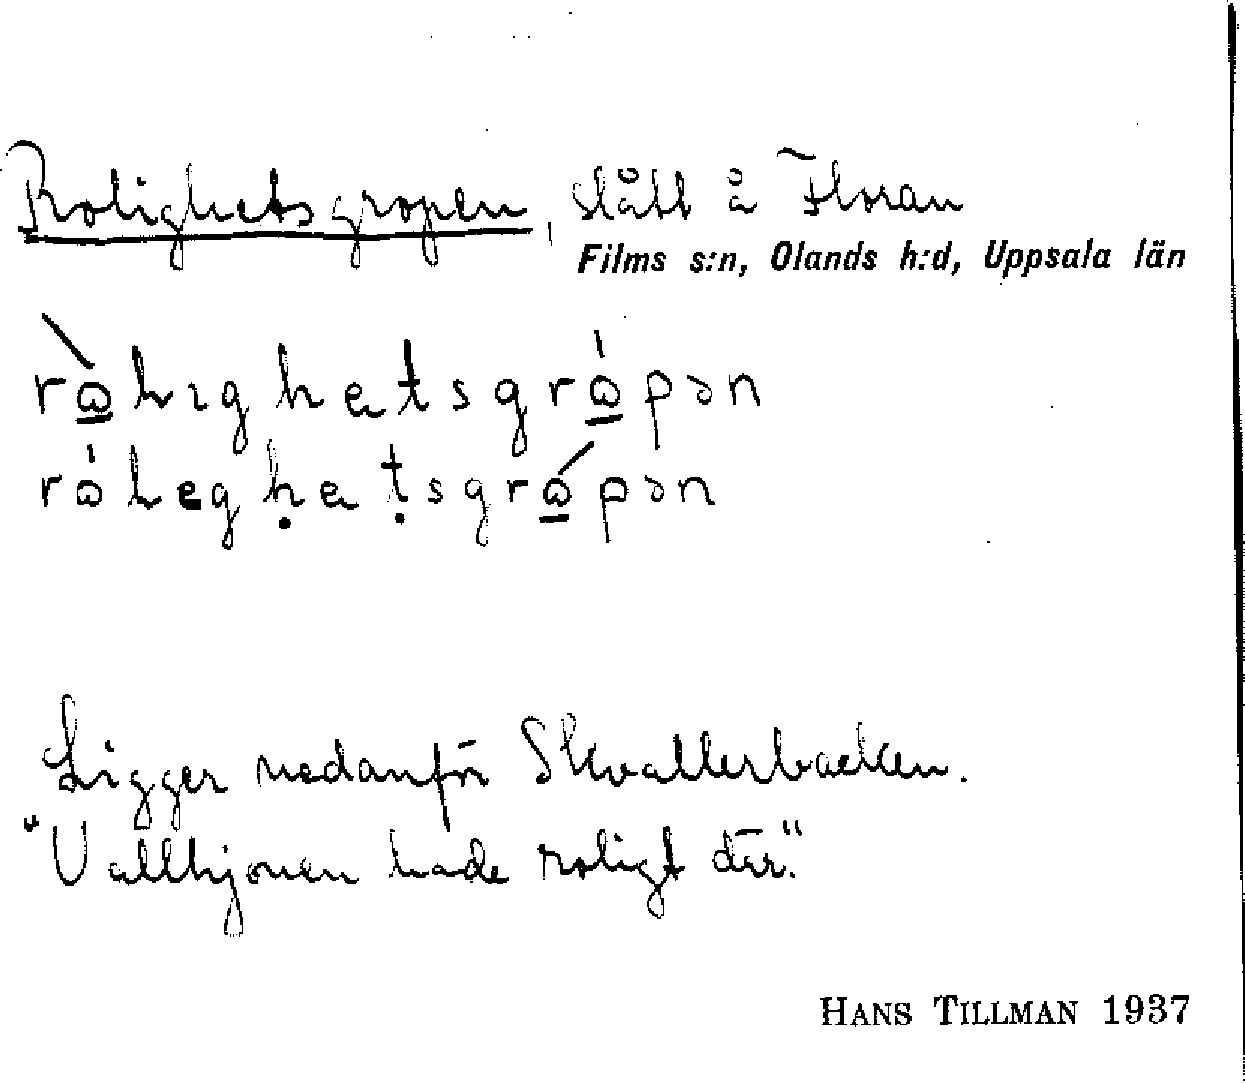 Rolighetsgropen, slått å Floran
Films s:n, Olands h:d, Uppsala län
Ligger nedanför Skvallerbacken.
"Vallhjonen hade roligt där."
HANS TILLMAN 1937